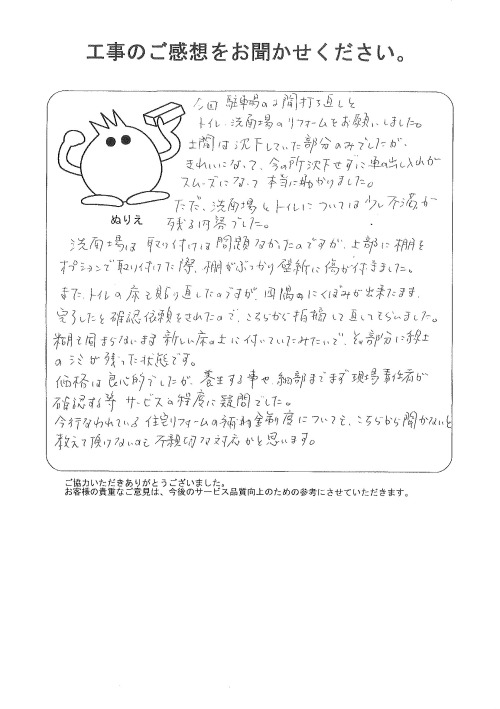 工事のご感想をお聞かせください。
今回 駐車場の土間打ち直しと
トイレ、洗面場のリフォームをお願いしました。
土間は沈下していた部分のみでしたが、
きれいになって、今の所沈下せずに車の出し入れが
スムーズになって本当に助かりました。
ただ、洗面場とトイレについては少し不満が
残る内容でした。
ぬりえ
洗面場は取り付けは問題なかったのですが、上部に棚を
オプションで取り付けた際、棚がぶつかり壁紙に傷が付きました。
また、トイレの床も貼り直したのですが、四隅にくぼみが出来たまま、
完了したと確認依頼をされたので、こちらから指摘して直してもらいました。
糊も固まらないまま新しい床の上に付いていたみたいで、その部分に
のシミが残った状態です。
価格は良心的でしたが、養生する事や、細部までまず現場責任者が
確認する等 サービスの程度に疑問でした。
今行なわれている住宅リフォームの補助金制度についても、こちらから聞かないと
教えて頂けないのも不親切な対応かと思います。
ご協力いただきありがとうございました。
お客様の貴重なご意見は、今後のサービス品質向上のための参考にさせていただきます。